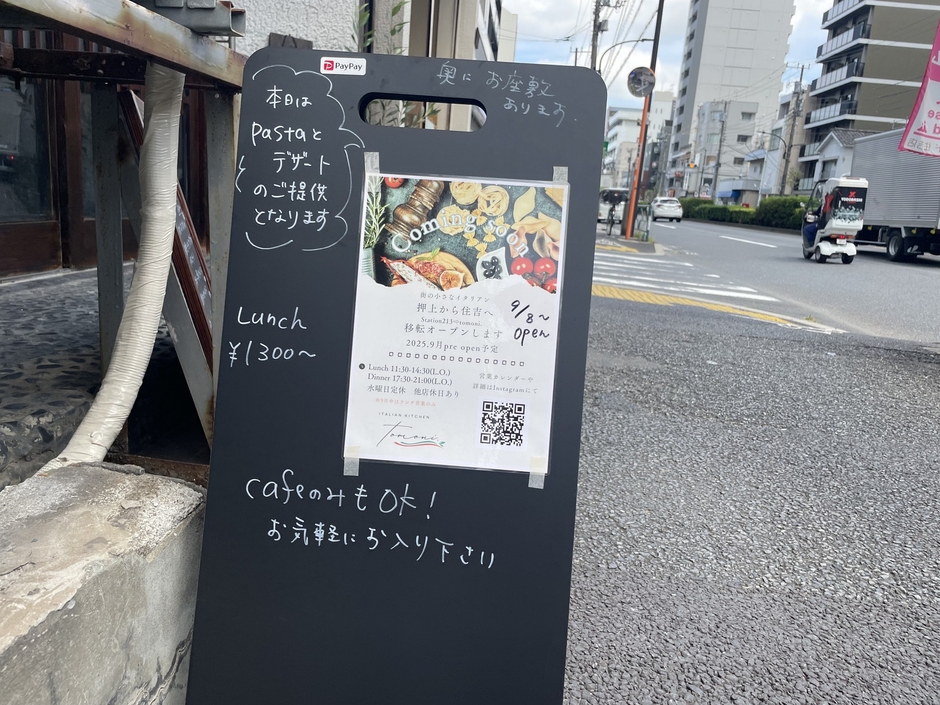 PayPay
奥に お座敷
あります.
本日は
Pastaと
デザート
のご提供
となります
Coming soon
街の小さなイタリアン
押上から住吉へ
Station213⇨tomoni.
移転オープンします
2025.9月pre open予定
9/8~
open
Lunch 11:30-14:30(L.O.)
Dinner 17:30-21:00(L.O.)
水曜日定休 他店休日あり
営業カレンダーや
詳細はInstagramにて
ITALIAN KITCHEN
Tomoni.
Lunch
¥1300~
cafeのみもOK!
お気軽にお入り下さい